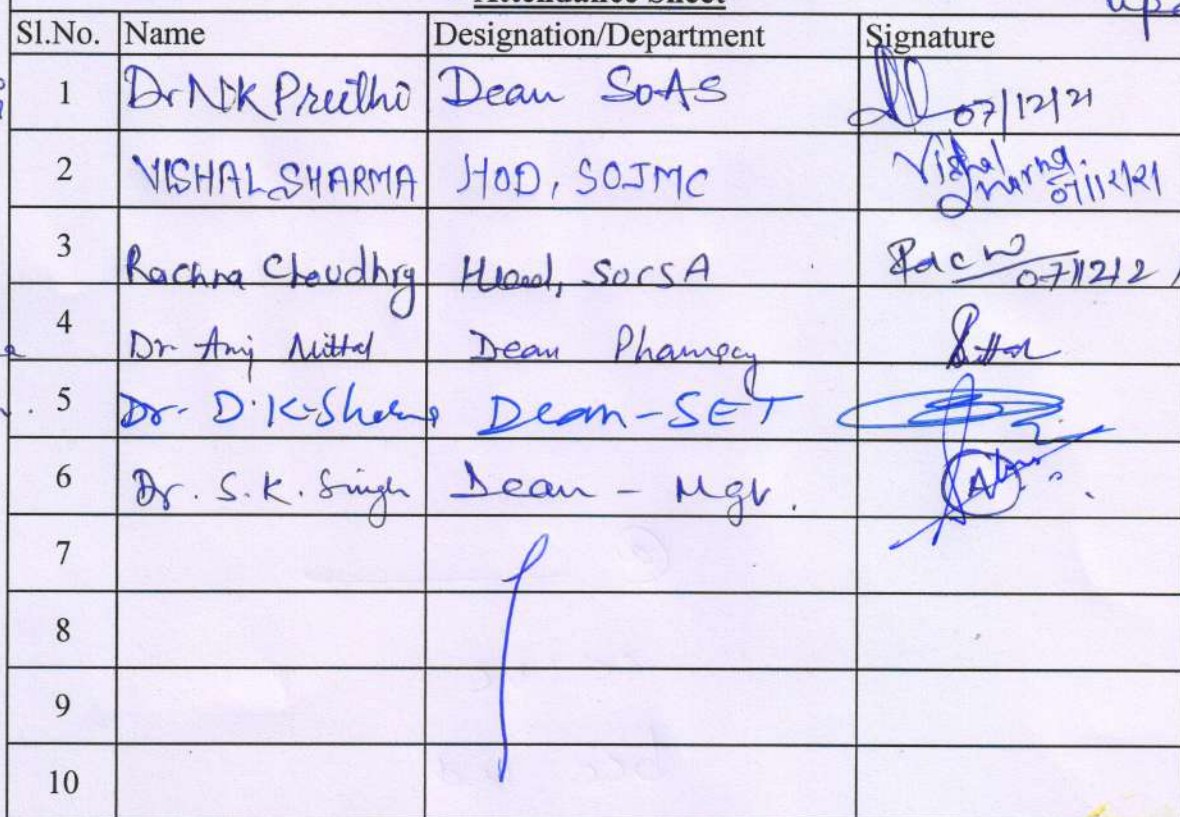 Attendance Sheet
Sl.No. Name Designation/Department Signature
1 Dr NK Preithi Dean SoAS 07/12/21
2 VISHAL SHARMA HOD, SOJMC Vishal Sharma 07/12/21
3 Rachna Choudhry Head, SOCSA 07/12/21
4 Dr Mittal Dean Pharmacy
5 Dr. D.K. Dean-SET
6 Dr. S.K. Singh Dean - Mgt.
7
8
9
10